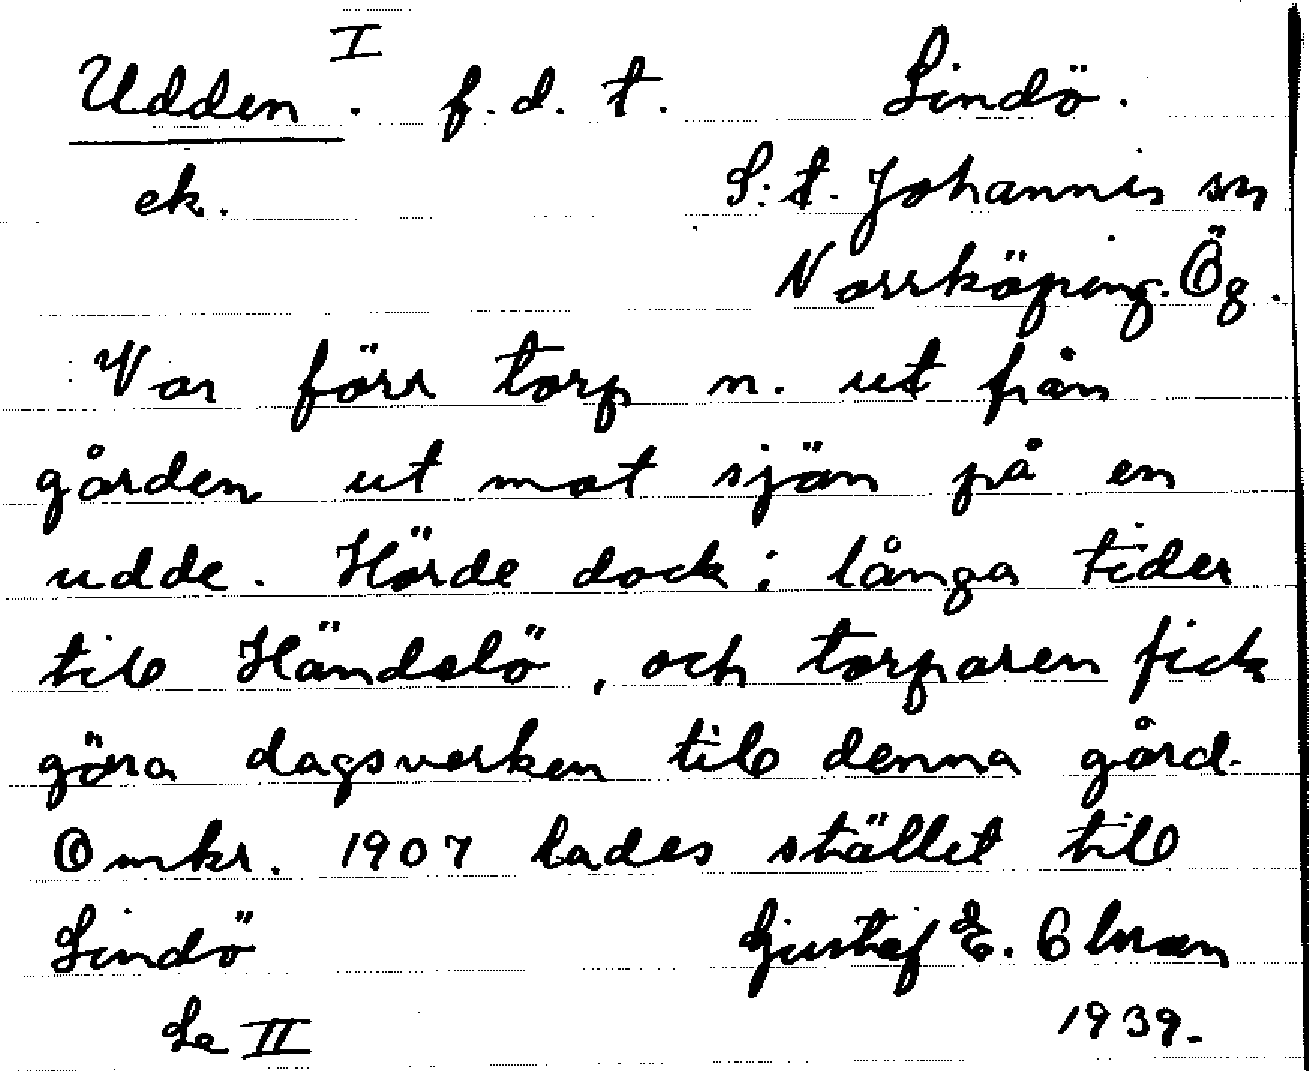 Udden I. f.d. t. Lindö.
ek. S:t. Johannis sn
Norrköping. Ög.
Var förr torp n. ut från
gården ut mot sjön på en
udde. Hörde dock i långa tider
till Händelö, och torparen fick
göra dagsverken till denna gård.
Omkr. 1907 lades stället till
Lindö Gustaf E.
Se II 1939.